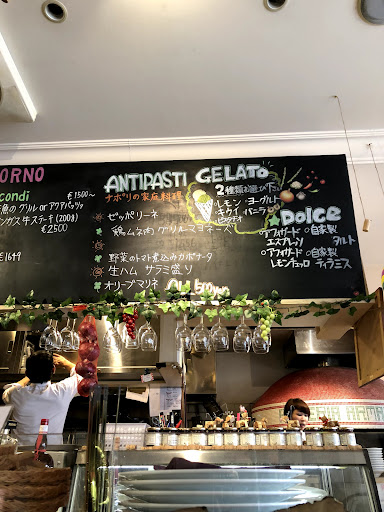 ORNO
condi
€1500〜
魚のグリル or アクアパッツァ
ンガス牛ステーキ(200g)
€2500
ANTIPASTI
ナポリの家庭料理
ゼッポリーネ
鶏ムネ肉グリルマヨネーズ
野菜のトマト煮込みカポナータ
生ハム サラミ盛り
オリーブマリネ
GELATO
2種類お選び下さい
レモン ヨーグルト
キウイ バニラ
ピスタチオ
Dolce
○アフォガード
エスプレッソ
○自家製
タルト
○アフォガード
レモンチェッロ
○自家製
ティラミス